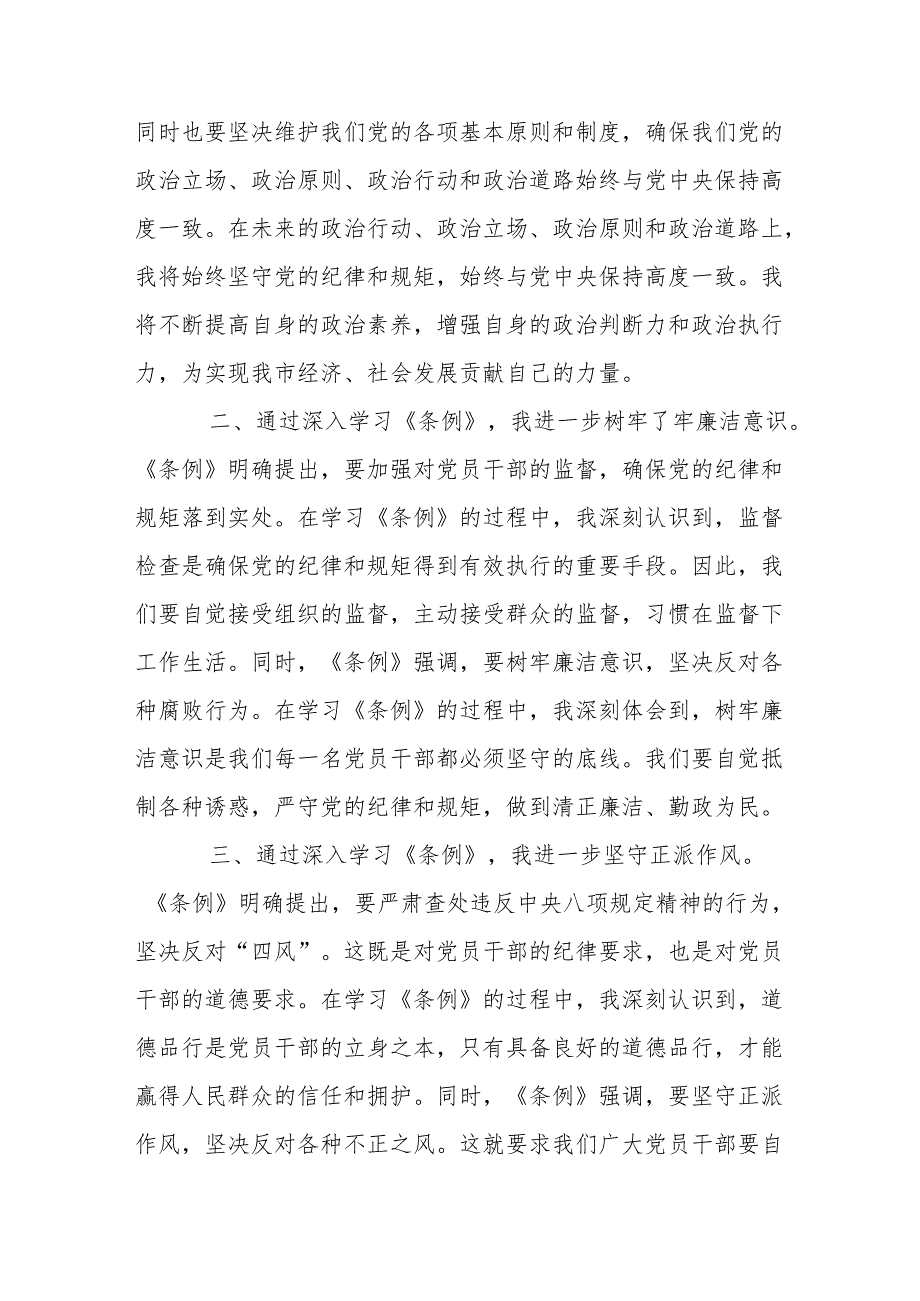 同时也要坚决维护我们党的各项基本原则和制度，确保我们党的
政治立场、政治原则、政治行动和政治道路始终与党中央保持高
度一致。在未来的政治行动、政治立场、政治原则和政治道路上，
我将始终坚守党的纪律和规矩，始终与党中央保持高度一致。我
将不断提高自身的政治素养，增强自身的政治判断力和政治执行
力，为实现我市经济、社会发展贡献自己的力量。
二、通过深入学习《条例》，我进一步树牢了牢廉洁意识。
《条例》明确提出，要加强对党员干部的监督，确保党的纪律和
规矩落到实处。在学习《条例》的过程中，我深刻认识到，监督
检查是确保党的纪律和规矩得到有效执行的重要手段。因此，我
们要自觉接受组织的监督，主动接受群众的监督，习惯在监督下
工作生活。同时，《条例》强调，要树牢廉洁意识，坚决反对各
种腐败行为。在学习《条例》的过程中，我深刻体会到，树牢廉
洁意识是我们每一名党员干部都必须坚守的底线。我们要自觉抵
制各种诱惑，严守党的纪律和规矩，做到清正廉洁、勤政为民。
三、通过深入学习《条例》，我进一步坚守正派作风。
《条例》明确提出，要严肃查处违反中央八项规定精神的行为，
坚决反对“四风”。这既是对党员干部的纪律要求，也是对党员
干部的道德要求。在学习《条例》的过程中，我深刻认识到，道
德品行是党员干部的立身之本，只有具备良好的道德品行，才能
赢得人民群众的信任和拥护。同时，《条例》强调，要坚守正派
作风，坚决反对各种不正之风。这就要求我们广大党员干部要自